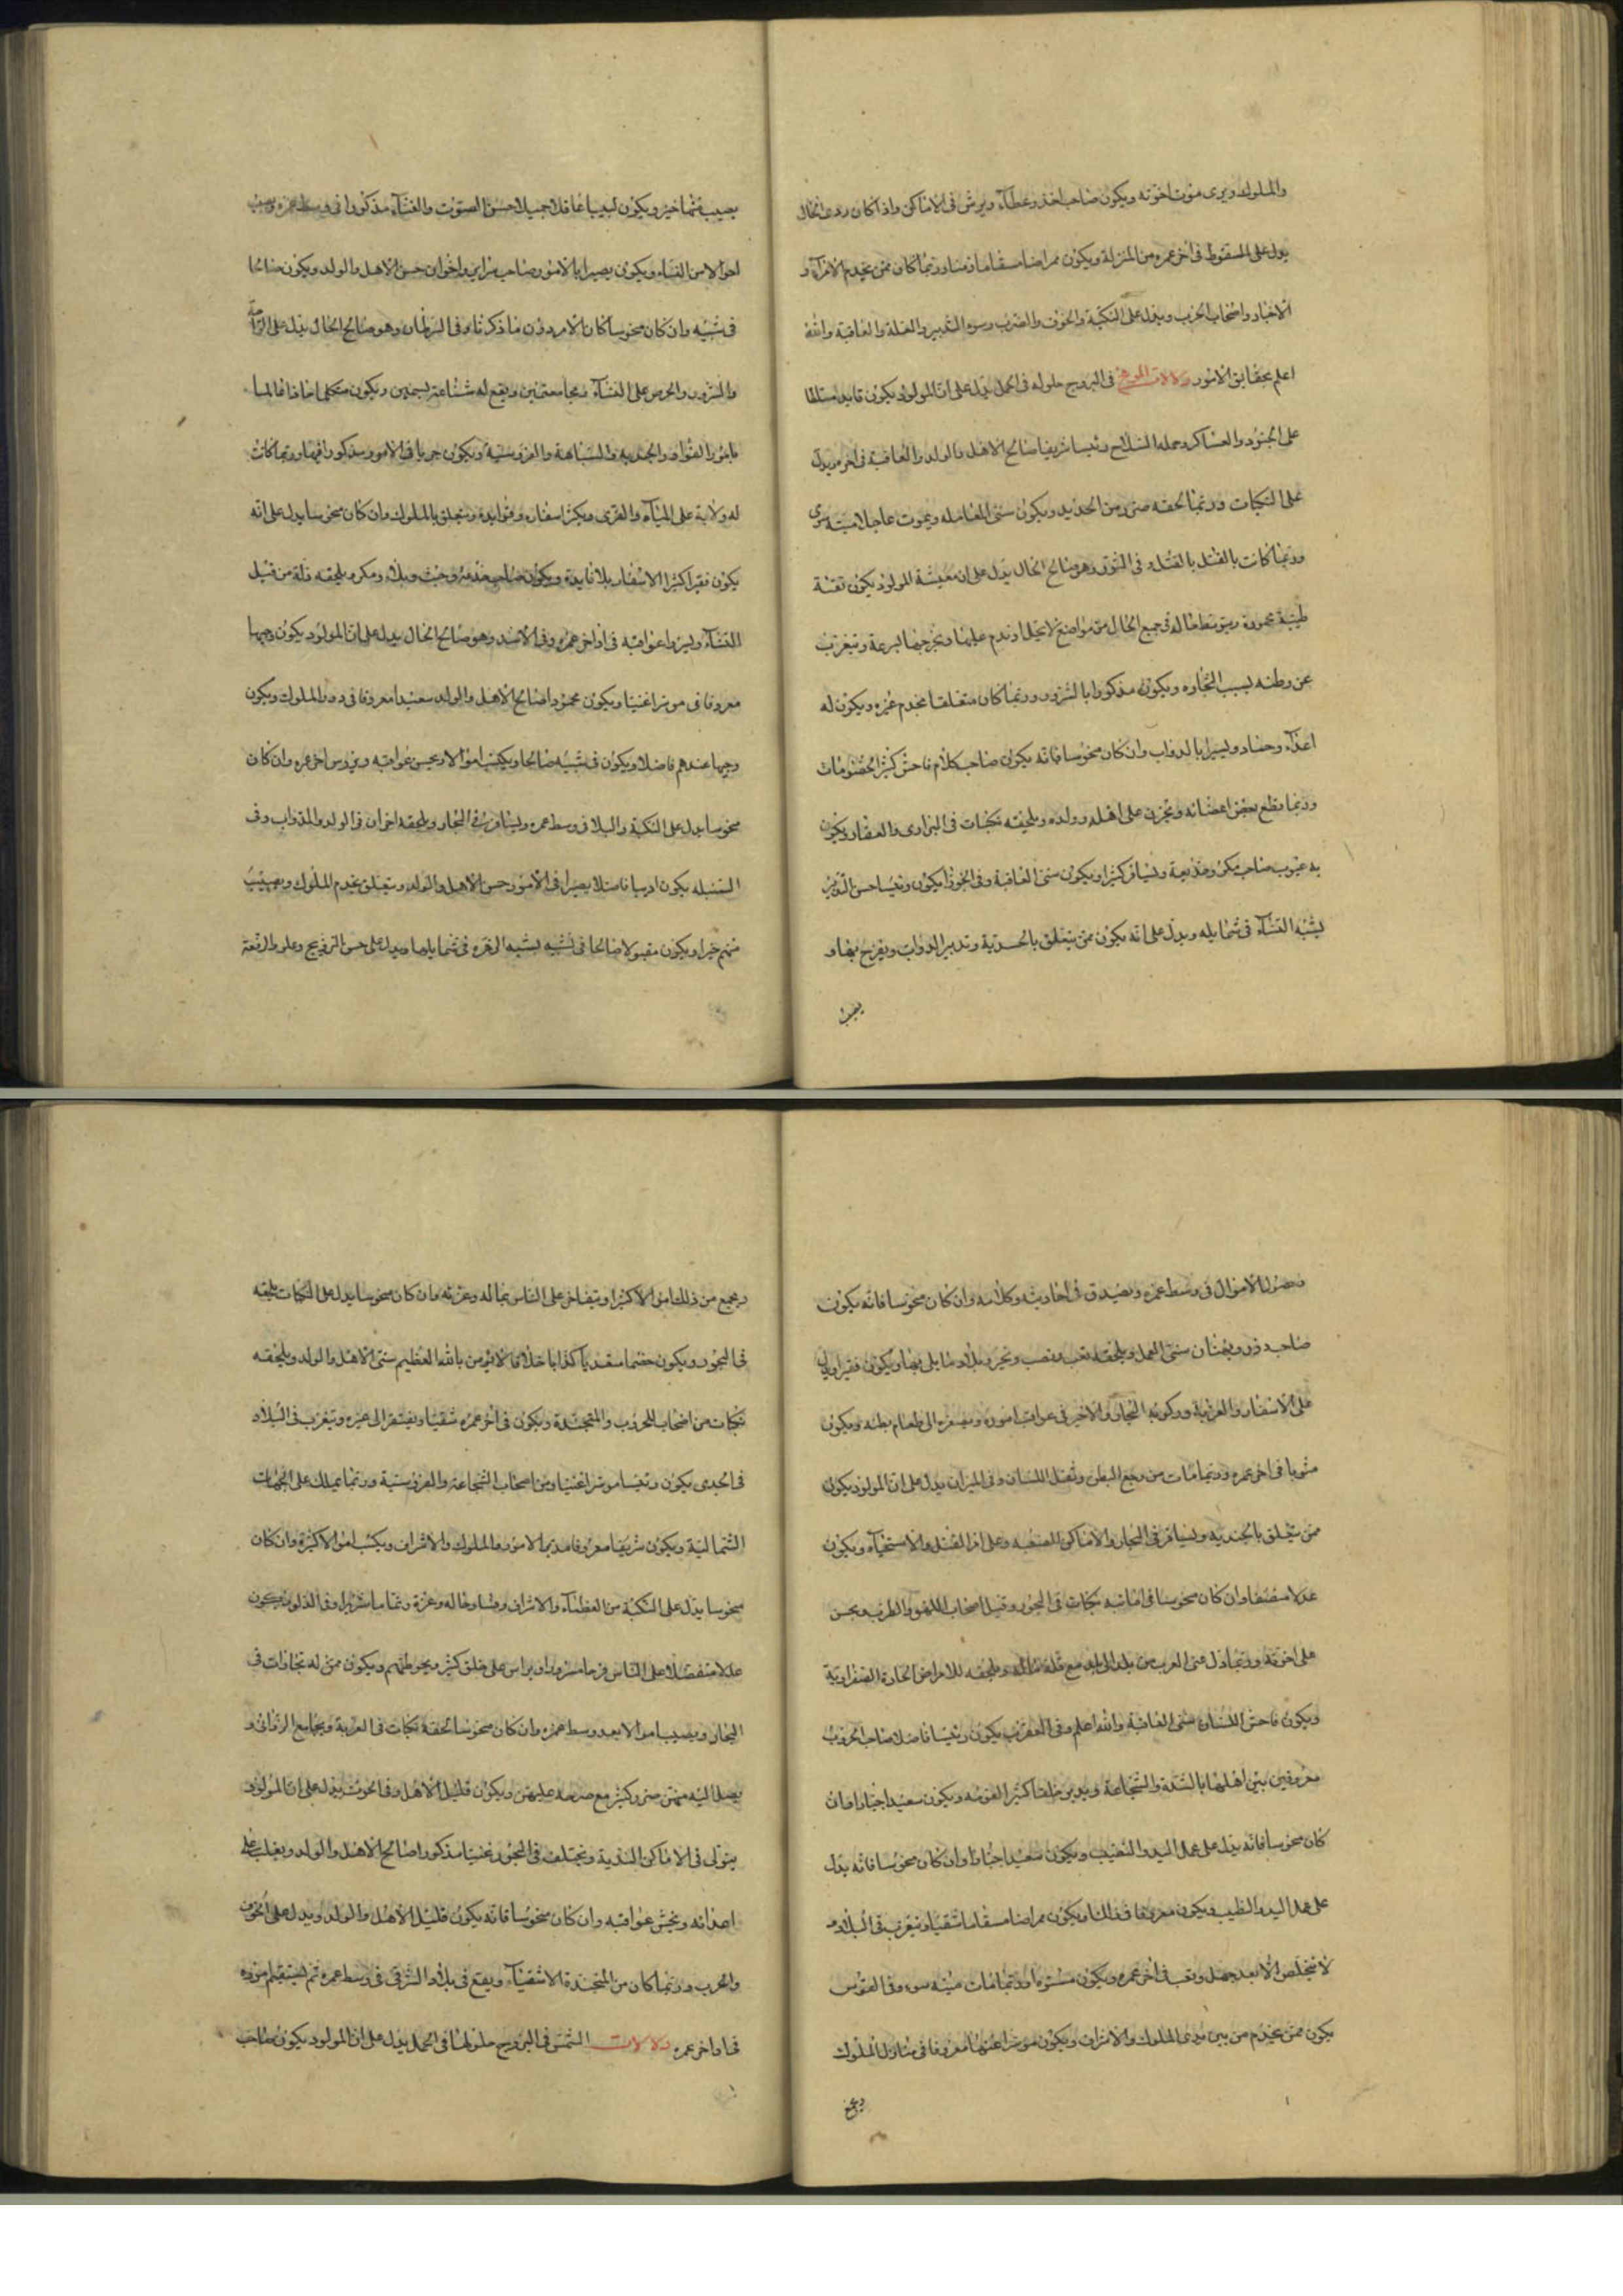 والملوك ويرى موت اخوته ويكون صاحب اخذ وعطاء ويرش فى الاماكن واذا كان ردى الحال
يدل على السقوط فى اخر عمره من المنزلة ويكون ممراضا مسقاما وربما كان ممن يخدم الامراء و
الاغبار واصحاب الحرب ويدل على النكبة والخوف والضرب وسوء التدبير والعلة والعاقبة والله
اعلم بحقايق الامور دلالات المريخ فى البروج حلوله فى الحمل يدل على ان المولود يكون قايد متسلطا
على الجنود والعساكر وحمله السلاح رئيسا شريفا صالح الاهل والولد والعاقبة فى اخره ويدل
على النكبات وربما لحقه ضرر من الحديد ويكون سئ المعامله ويموت عاجلا ميتة سوى
وربما كانت بالقتل بالقتل وفى الثور وهو صالح الحال يدل على ان معيشة المولود يكون نقية
طيبة محمودة فى جميع الحال من مواضع لا يخلو وندم عليها ويخرجها بسرعة ويتغرب
عن وطنه بسبب التجاره ويكون مذكورا بالشرور وربما كان متعلقا بخدم غيره ويكون له
اعداء وحساد وليسرا بالدواب وان كان منحوسا فانه يكون صاحب كلام فاحش كثير الخصومات
وربما يقطع بعض اعضائه ويحزن على اهله وولده ويلحقه نكبات فى البرارى والعقار ويكون
به عيوب صاحب مكر وخديعة ويسافر كثيرا ويكون سئ العاقبة وفى الجوزا يكون رئيسا حسن التدبير
يشبه النساء فى شمايله ويدل على انه يكون ممن يتعلق بالجندية وتدبير الدواب ويفرح بها و
يصيب
يصيب منها خير ويكون لبيبا عاقلا جميلا حسن الصوت والغناء مذكورا فى وسط عمره ويصيب
اموالا من النساء ويكون بصيرا بالامور صاحب سراير واخوان حسن الاهل والولد ويكون صالحا
فى شبيه وان كان منحوسا كان الامر دون ما ذكرناه وفى السرطان وهو صالح الحال يدل على الراحة
والسرور والحرص على النساء ومجامعتهن ويقع له شناعة بسببهن ويكون متكلما حاذقا عالما
بامور القواد والجنديه والنباهة والفروسية ويكون جريا فى الامور مذكورا فيها وربما كانت
له ولاية على المياه والقرى ويكثر اسفاره وفوايده ويتعلق بالملوك وان كان منحوسا يدل على انه
يكون فقيرا كثير الاسفار بلا فايدة ويكون صاحب خدمه وخبث وبلاء ومكر ويلحقه ذلة من قبل
النساء ويسر واعواقبه فى اواخر عمره وفى الاسد وهو صالح الحال يدل على ان المولود يكون وجيها
معروفا فى موسرا غنيا ويكون محمودا صالح الاهل والولد سعيدا معروفا فى دور الملوك ويكون
وجيها عندهم فاضلا ويكون فى شبيه صالحا ويكتسب اموالا ويحسن عواقبه ويروس اخر عمره وان كان
منحوسا يدل على النكبة والبلا فى وسط عمره ويسافر فى البحار ويلحقه احزان فى الولد والدواب وفى
السنبله يكون اديبا فاضلا بصيرا فى الامور حسن الاهل والولد ويتعلق بخدم الملوك ويصيب
منهم خيرا ويكون مقبولا صالحا فى شبيه يشبه الزهره فى شمايلها ويدل على حسن التزويج وعلو الرفعة
وحصول الاموال فى وسط عمره ويصدق فى احاديثه وكلامه وان كان منحوسا فانه يكون
صاحب زور وبهتان سئ العمل ويلحقه تعب ونصب وتحير وبلاء مما يلى بها ويكون فقيرا ويدل
على الاسفار والغربة وركوبه البحار والاخير فى عواقب اموره ويصغره الى طعام بطنه ويكون
مثوبا فى اخر عمره وربما مات من وجع البطن وثقل اللسان وفى الميزان يدل على ان المولود يكون
ممن يتعلق بالجنديه ويسافر فى البحار والاماكن الصعبه وعلى امر القتل والاستحياء ويكون
عدلا منصفا وان كان منحوسا فى اصابته نكبات فى البحور وقبل اصحاب اللهو والطرب ويحسن
على اخوته وربما دل على الهرب من بلد الى بلد مع قلة ماله ويلحقه الامراض الحادة الصفراوية
ويكون فاحش اللسان سئ العاقبة والله اعلم وفى العقرب يكون رئيسا فاضلا صاحب حروب
معروفين بين اهلها بالشدة والشجاعة ويدبر خلقا كثير القومه ويكون سعيدا جبارا وان
كان منحوسا فانه يدل على عمل اليد والتعب ويكون سعيدا جبارا وان كان منحوسا فانه يدل
على عمل اليد والطبيب ويكون معروفا ويكون ممراضا مسقاما شقيا ويتغرب فى البلاد و
لا يتخلص الا بعد جهل وتعب فى اخر عمره ويكون مستورا وربما مات ميتة سوء وفى القوس
يكون ممن يخدم من بين يدى الملوك والاشراف ويكون موسرا غنيا معروفا فى منازل الملوك
ويجمع
ويجمع من ذلك اموالا كثيرا ويتفاخر على الناس بماله وعزته وان كان منحوسا يدل على النكبات تلحقه
فى البحور ويكون خصما متعديا كذابا حلافا لا يؤمن بالله العظيم سئ الاهل والولد ويلحقه
نكبات من اصحاب الحروب والمتجندة ويكون فى اخر عمره شقيا ويفتقر الى غيره ويتغرب فى البلاد
فى الجدى يكون رئيسا موسرا غنيا ومن اصحاب الشجاعة والفروسية وربما يملك على الجهات
الشمالية ويكون شريفا معروفا مدبرا لامور والملوك والاشراف ويكتسب اموالا كثيرة وان كان
منحوسا يدل على النكبة من العظماء والاشراف وفساد حاله وعزة وربما شريرا وفى الدلو يكون
عدلا منفصلا على الناس فرحا مسرورا ويراس على خلق كثير ويحوطهم ويكون ممن له تجارات فى
البحار ويصيب اموالا بعد وسط عمره وان كان منحوسا لحقه نكبات فى الغربة ويجامع الزوانى و
يصل اليه منهن ضرر كثير مع حرصه عليهن ويكون قليل الاهل وفى الحوت يدل على ان المولود
يتولى فى الاماكن الندية ويختلف فى البحور غنيا مذكورا صالح الاهل والولد ويغلب على
اعدائه ويخش عواقبه وان كان منحوسا فانه يكون قليل الاهل والولد ويدل على الخوف
والحرب وربما كان من المتجندة الاشقياء ويقع فى بلاد الشرق فى وسط عمره ثم يستقيم اموره
فى اواخر عمره دلالات الشمس فى البروج حلولها فى الحمل يدل على ان المولود يكون صاحب